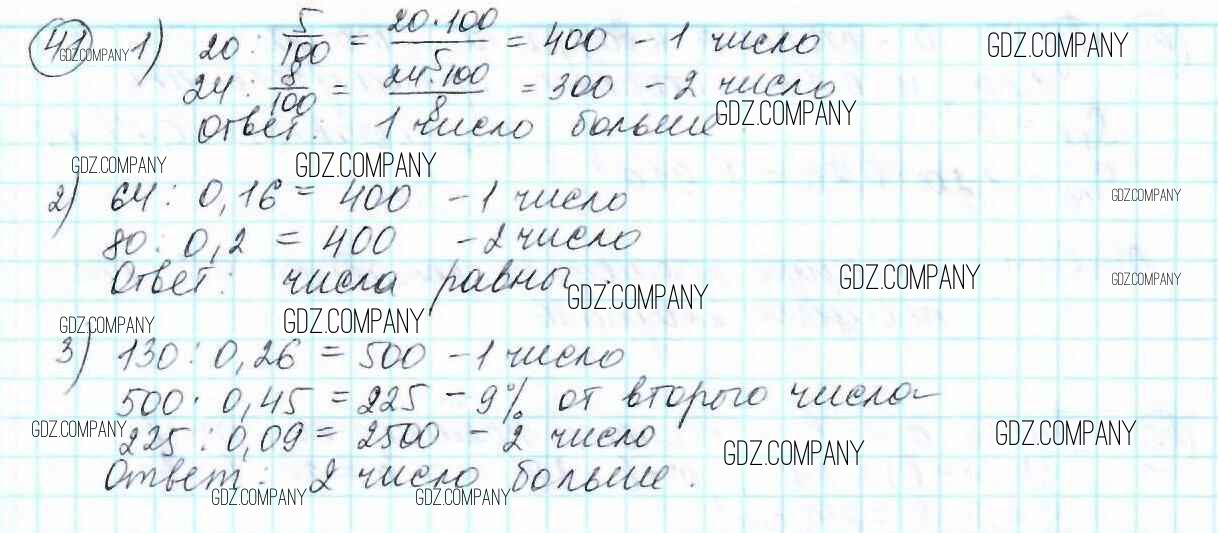 41 GDZ.COMPANY 1) 20 : 5/100 = 20·100/5 = 400 – 1 число GDZ.COMPANY
24 : 8/100 = 24·100/8 = 300 – 2 число
Ответ: 1 число больше. GDZ.COMPANY
GDZ.COMPANY GDZ.COMPANY
2) 64 : 0,16 = 400 – 1 число GDZ.COMPANY
80 : 0,2 = 400 – 2 число
Ответ: числа равны. GDZ.COMPANY GDZ.COMPANY GDZ.COMPANY
GDZ.COMPANY GDZ.COMPANY
3) 130 : 0,26 = 500 – 1 число
500 · 0,45 = 225 – 9% от второго числа
GDZ.COMPANY 225 : 0,09 = 2500 – 2 число GDZ.COMPANY GDZ.COMPANY
Ответ: 2 число больше.
GDZ.COMPANY GDZ.COMPANY